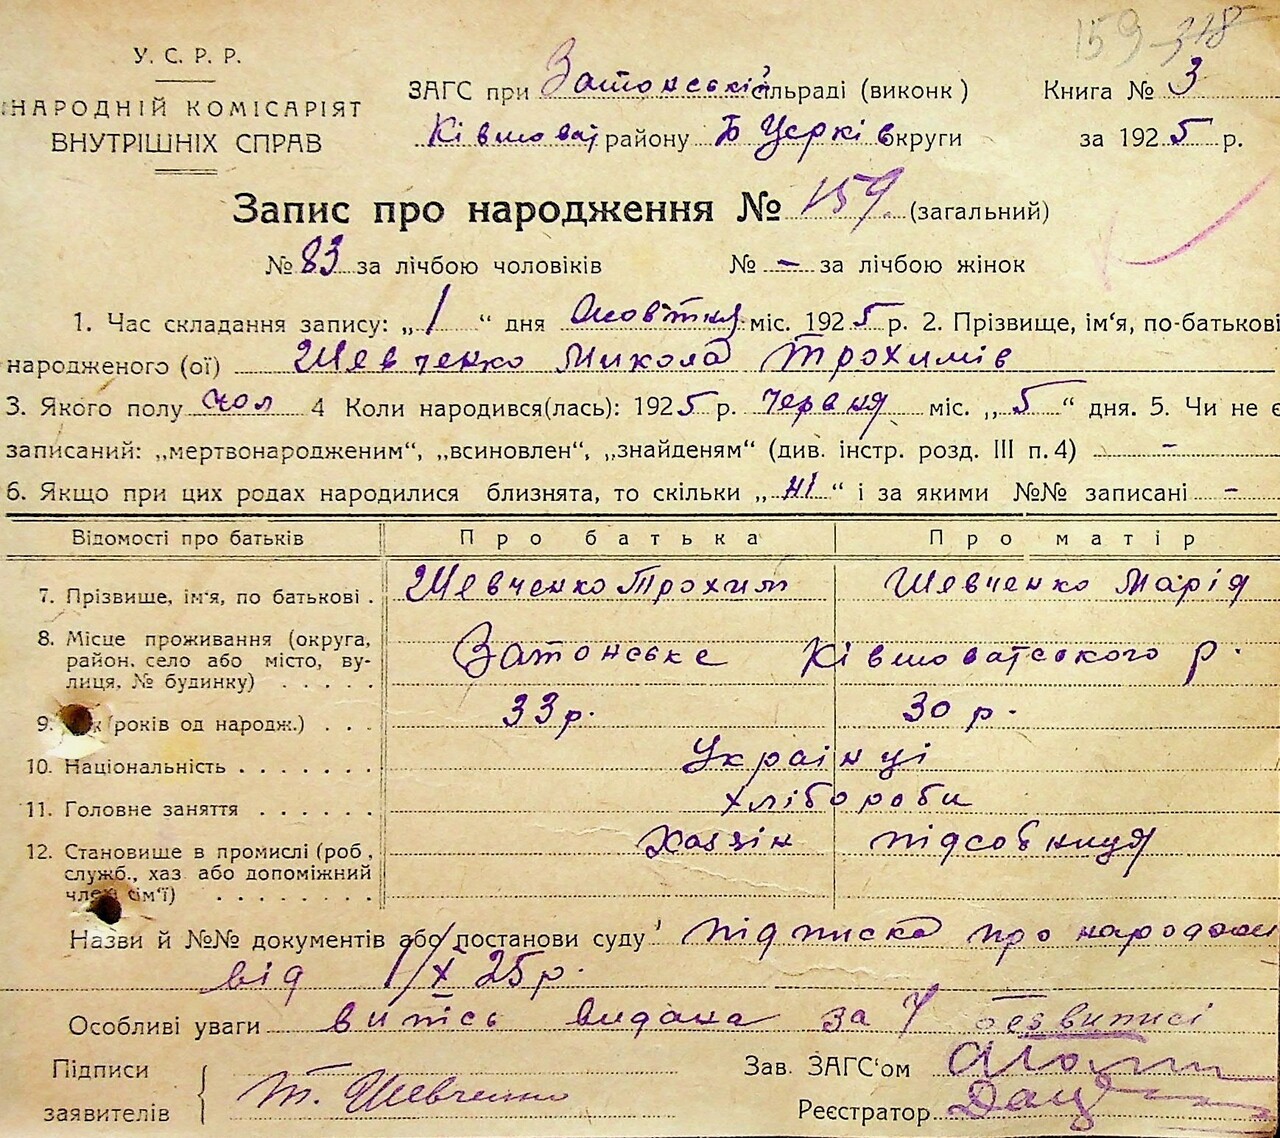 159-318
У. С. Р. Р.
НАРОДНІЙ КОМІСАРІЯТ
ВНУТРІШНІХ СПРАВ
ЗАГС при Затонській сільраді (виконк) Книга № 3
Ківшоват району Б Церків округи за 1925 р.
Запис про народження № 159. (загальний)
№ 83 за лічбою чоловіків № - за лічбою жінок
1. Час складання запису: „1“ дня жовтня міс. 1925 р. 2. Прізвище, ім‘я, по-батькові
народженого (ої) Шевченко Микола Трохимів
3. Якого полу чол 4 Коли народився(лась): 1925 р. червня міс. „5“ дня. 5. Чи не є
записаний: „мертвонародженим“, „всиновлен“, „знайденям“ (див. інстр. розд. III п. 4) -
6. Якщо при цих родах народилися близнята, то скільки „ні“ і за якими №№ записані -
Відомості про батьків Про батька Про матір
7. Прізвище, ім‘я, по батькові . Шевченко Трохим Шевченко Марія
8. Місце проживання (округа,
район. село або місто, ву-
лиця, № будинку) . . . . . Затонське Ківшоватського р.
9. (років од народж.) . . . 33 р. 30 р.
10. Національність . . . . . . . Українці
11. Головне заняття . . . . . . хлібороби
12. Становище в промислі (роб., Хазяін підсобниця
служб., хаз або допоміжний
член сім‘ї) . . . . . . . .
Назви й №№ документів або постанови суду підписка про
від 1/X 25 р.
Особливі уваги випись видана за 7 без виписі
Підписи
заявителів Т. Шевченко
Зав. ЗАГС‘ом
Реєстратор